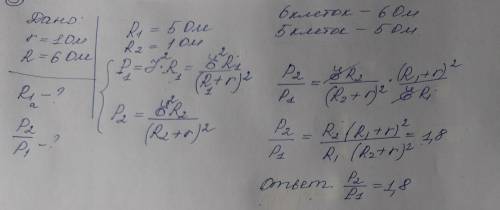 Дано:
r = 1 Ом
R = 6 Ом
R₁ - ?
a
P₂/P₁ - ?
R₁ = 5 Ом
R₂ = 1 Ом
P₁ = J²R₁ = ℰ²R₁/(R₁+r)²
P₂ = ℰ²R₂/(R₂+r)²
6 клеток – 6 Ом
5 клеток – 5 Ом
P₂/P₁ = ℰR₂/(R₂+r)² · (R₁+r)²/ℰR₁
P₂/P₁ = R₂(R₁+r)²/R₁(R₂+r)² = 1,8
Ответ. P₂/P₁ = 1,8